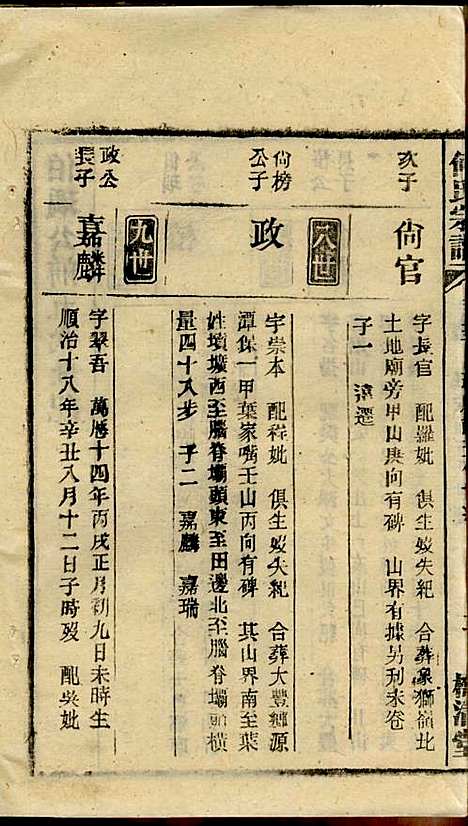 氏宗譜
亥子
尙官
字長官 配羅妣 俱生歿失紀 合葬象獅嶺北
土地廟旁甲山庚向有碑 山界有據另刋末卷
子一 濟遷
八世
尙榜公子
政
字崇本 配程妣 俱生歿失紀 合葬大豐鄉源
潭保一甲葉家嘴壬山丙向有碑 其山界南至葉
姓墳壙西至腦脊塥頭東至田邊北至腦脊塥頭橫
量四十八步 子二 嘉麟 嘉瑞
九世
政公長子
嘉麟
字翠吾 萬曆十四年丙戌正月初九日未時生
順治十八年辛丑八月十二日子時歿 配吳妣